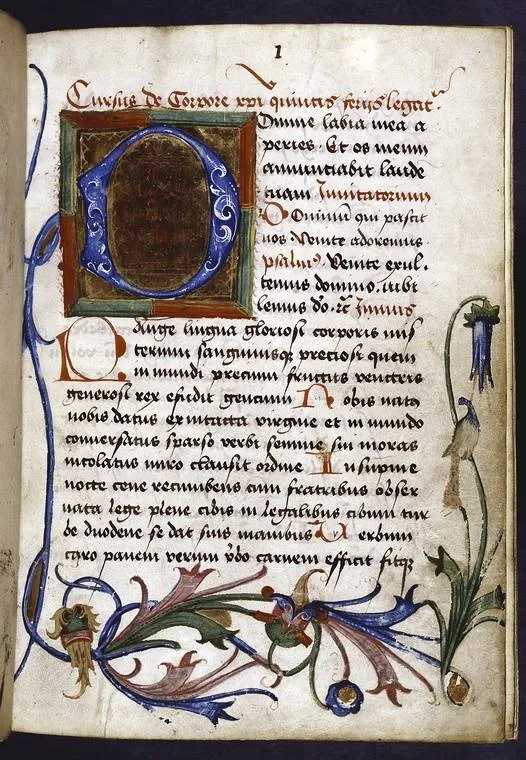 1
Cursus de Corpore xpi quintis ferijs legitr
Domine labia mea a
peries. Et os meum
annunciabit laude
tuam Inuitatorium
Dominū qui pascit
nos. Venite adoremus.
psalmꝰ. Venite exul.
temus domino. iubi
lemus do. rc̄ Jmnus
Pange lingua gloriosi corporis mis
terium sanguinisqꝫ preciosi quem
in mundi precium fructus ventris
generosi rex efudit gencium Nobis natꝰ
nobis datus ex intacta virgine et in mundo
conuersatus sparso verbi semine sui moras
incolatus miro clausit ordine In supme
nocte cene recumbens cum fratribus obser
uata lege plene cibis in legalibus cibum tur
be duodene se dat suis manibus Verbum
caro panem verum v̄bo carnem efficit fitqꝫ